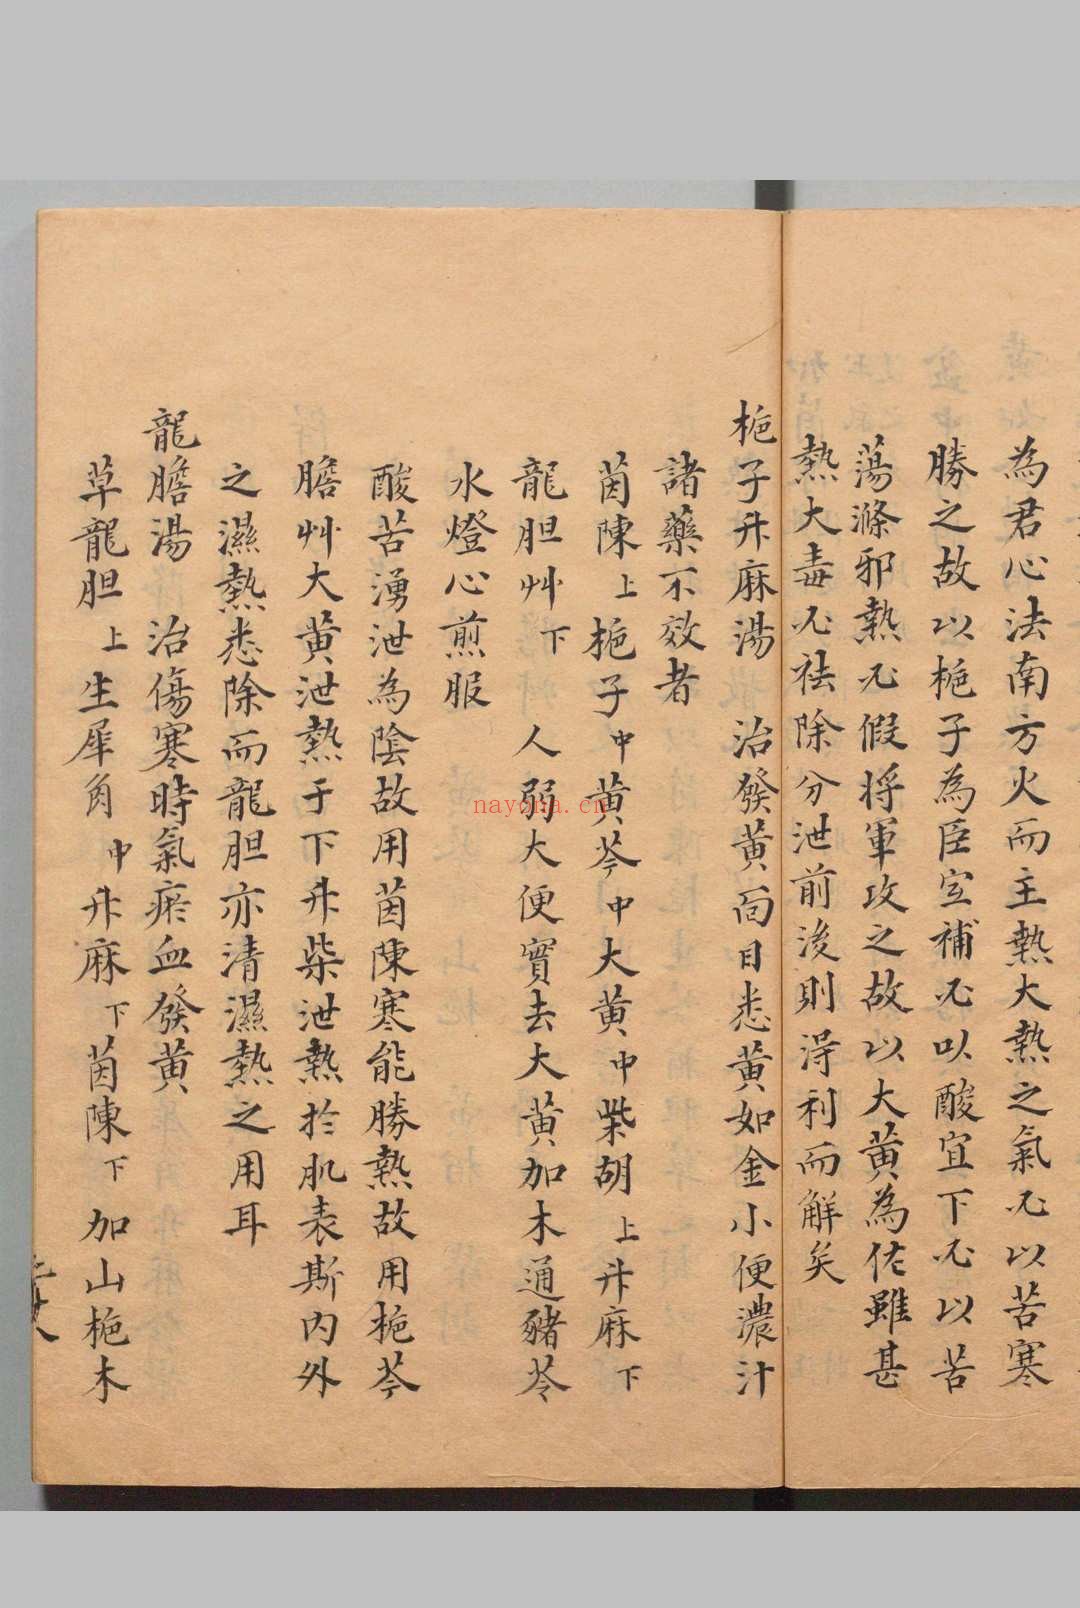 為君心法南方火而主熱大熱之氣必以苦寒
勝之故以梔子為臣宜補必以酸宜下必以苦
蕩滌邪熱必假將軍攻之故以大黃為佐雖甚
熱大毒必祛除分泄前後則得利而解矣
梔子升麻湯 治發黃面目悉黃如金小便濃汁
諸藥不效者
茵陳上梔子中黃芩中大黃中柴胡上升麻下
龍胆艸下 人弱大便實去大黃加木通豬苓
水燈心煎服
酸苦湧泄為陰故用茵陳寒能勝熱故用梔芩
膽艸大黃泄熱于下升柴泄熱於肌表斯內外
之濕熱悉除而龍胆亦清濕熱之用耳
龍膽湯 治傷寒時氣瘀血發黃
草龍胆上生犀角中升麻下茵陳下 加山梔木
nayona.cn